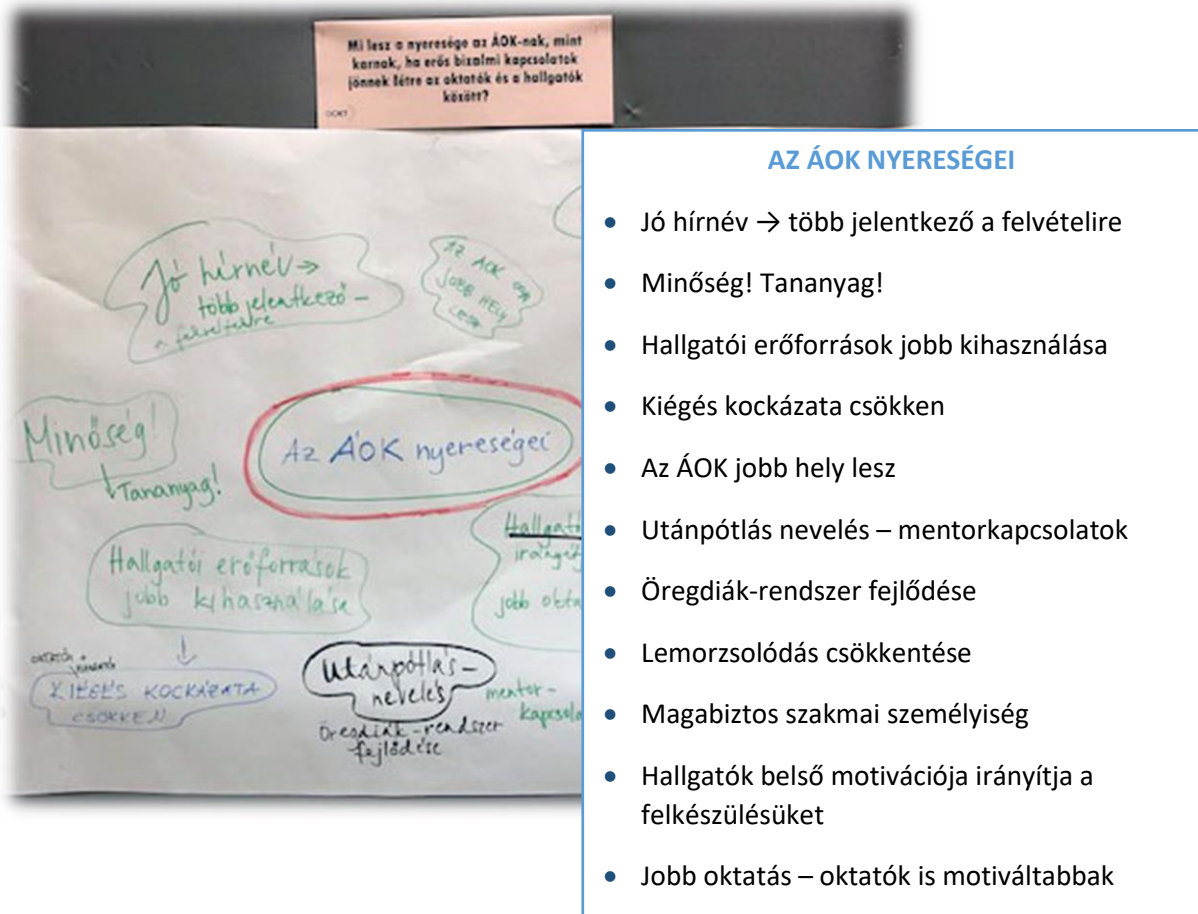 Mi lesz a nyeresége az ÁOK-nak, mint
karnak, ha erős bizalmi kapcsolatok
jönnek létre az oktatók és a hallgatók
között?
Jó hírnév →
több jelentkező –
a felvételire
AZ ÁOK
JOBB HELY
LESZ
Minőség!
↓ Tananyag!
Az ÁOK nyereségei
Hallgatói erőforrások
jobb kihasználása
↓
KIÉGÉS KOCKÁZATA
CSÖKKEN
Utánpótlás–
nevelés
Öregdiák-rendszer
fejlődése
mentor-
jobb
AZ ÁOK NYERESÉGEI
• Jó hírnév → több jelentkező a felvételire
• Minőség! Tananyag!
• Hallgatói erőforrások jobb kihasználása
• Kiégés kockázata csökken
• Az ÁOK jobb hely lesz
• Utánpótlás nevelés – mentorkapcsolatok
• Öregdiák-rendszer fejlődése
• Lemorzsolódás csökkentése
• Magabiztos szakmai személyiség
• Hallgatók belső motivációja irányítja a
felkészülésüket
• Jobb oktatás – oktatók is motiváltabbak